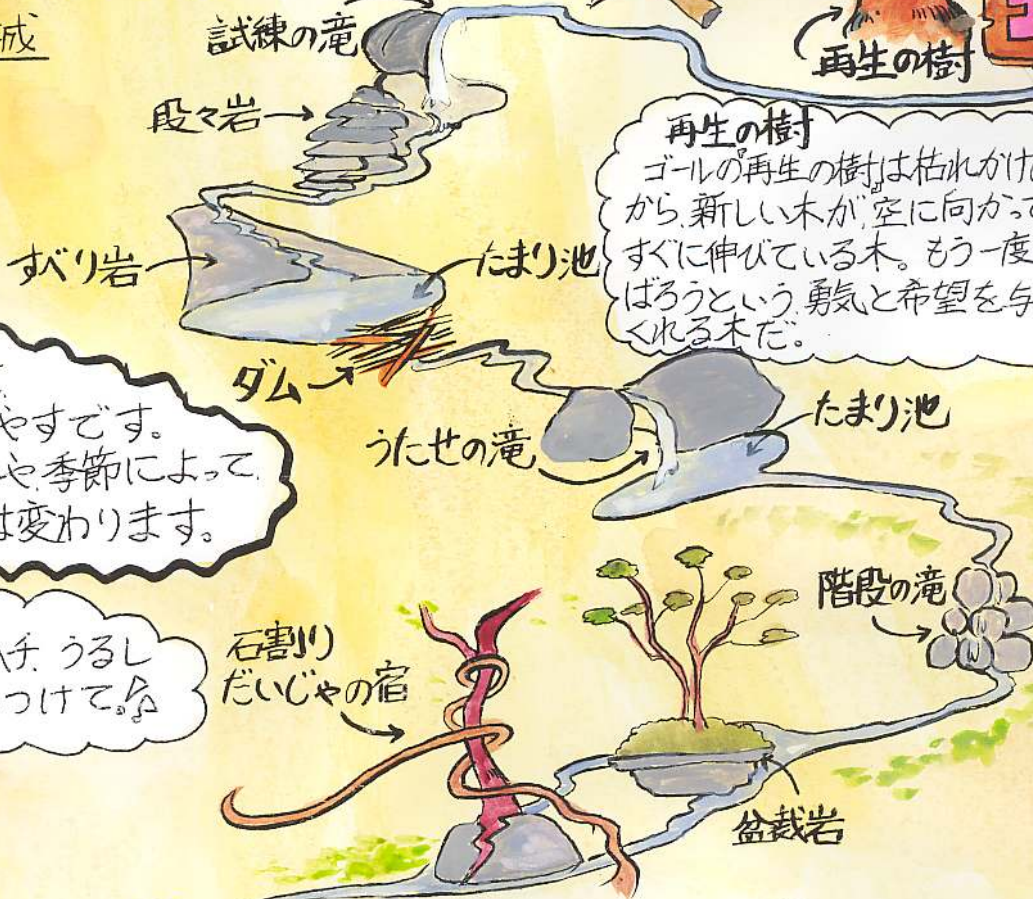 城
試練の滝
再生の樹
段々岩
再生の樹
ゴールの『再生の樹』は枯れかけ
から、新しい木が、空に向かって
すぐに伸びている木。もう一度
ばろうという、勇気と希望を与
くれる木だ。
すべり岩
たまり池
ダム
やすです。
や、季節によって、
は変わります。
うたせの滝
たまり池
階段の滝
ハチ、うるし
つけて。
石割り
だいじゃの宿
盆栽岩